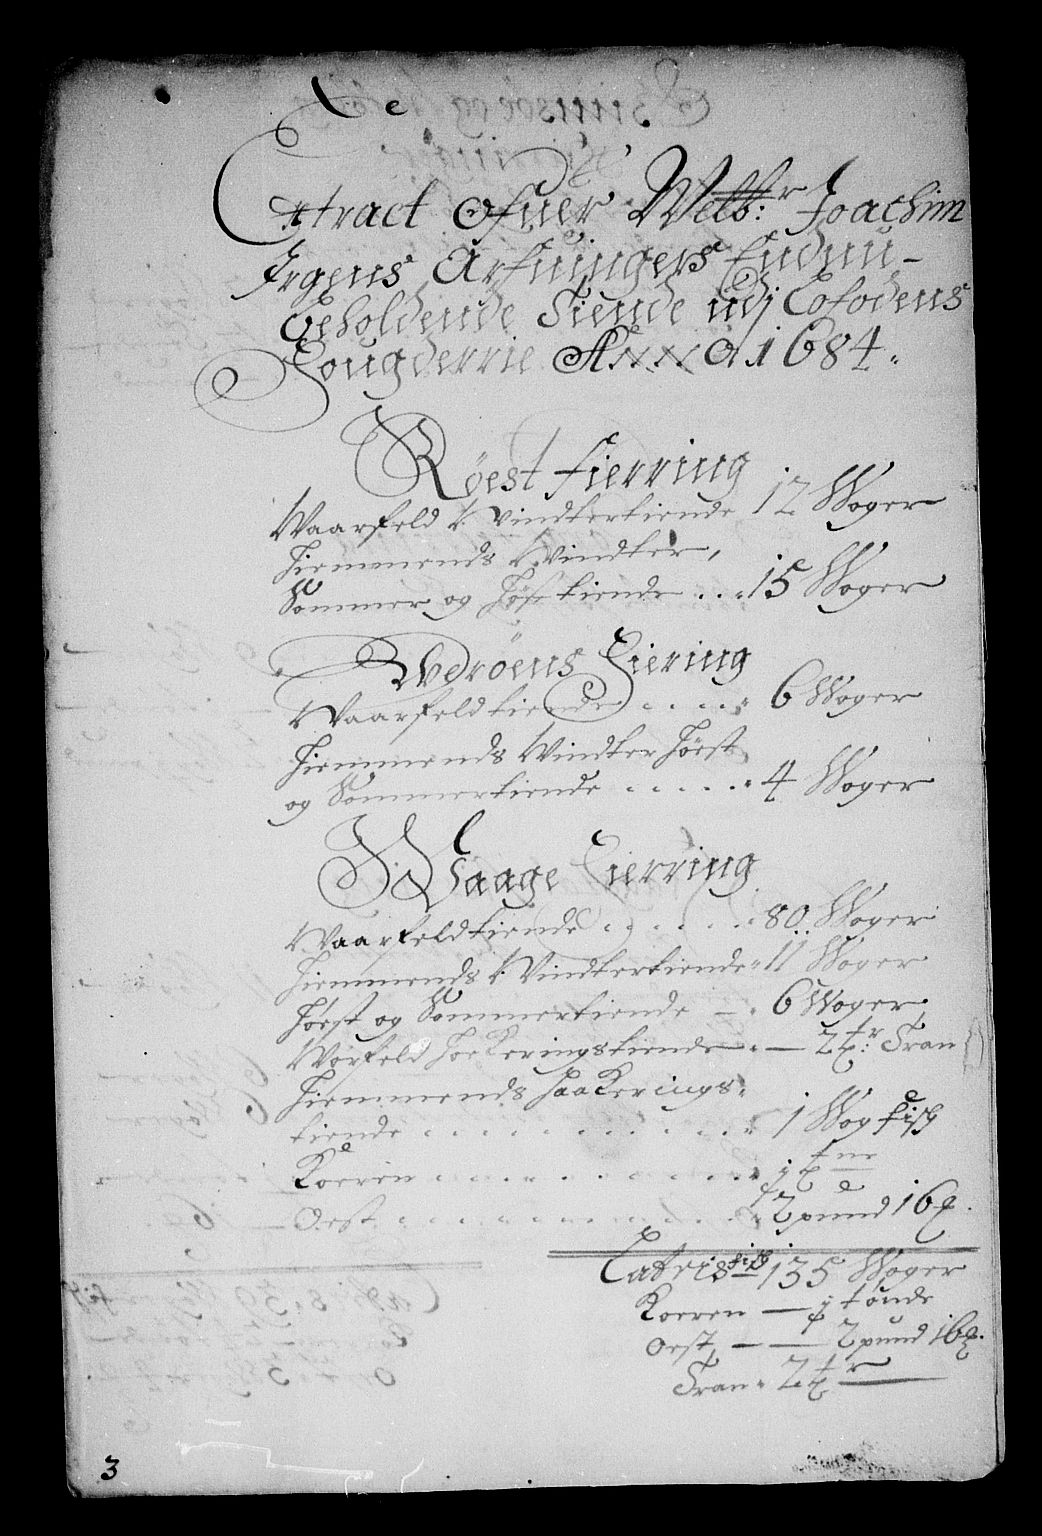 Extract ofuer Welb:r Joachim
Irgens Arfuingers Endnu
beholdende Tiende udj Lofodens
Fougderrie Anno 1684.
Røest Fierring
Waarfeld & Vindtertiende 12 Woger
Hiemmends Windter,
Sommer og Høstetiende ... 15 Woger
Werøens Fiering
Waarfeldtiende ..... 6 Woger
Hiemmends Windter Høest
og Sommertiende ..... 4 Woger
Waage Fierring
Waarfeldtiende ..... 80. Woger
Hiemmends & Vindtertiende 11 Woger
Høest og Sommertiende — 6 Woger
Worfeld Hoekeringstiende — 2 tr: Tran
Hiemmends Haakerings
tiende .......... 1 Wog fisk
Koeren ......... j tne
Oest ......... 2 pund 16
Lateris fisk 135 Woger
Koeren — j tønde
oest, — 2 pund 16
Tran 2 tr
3